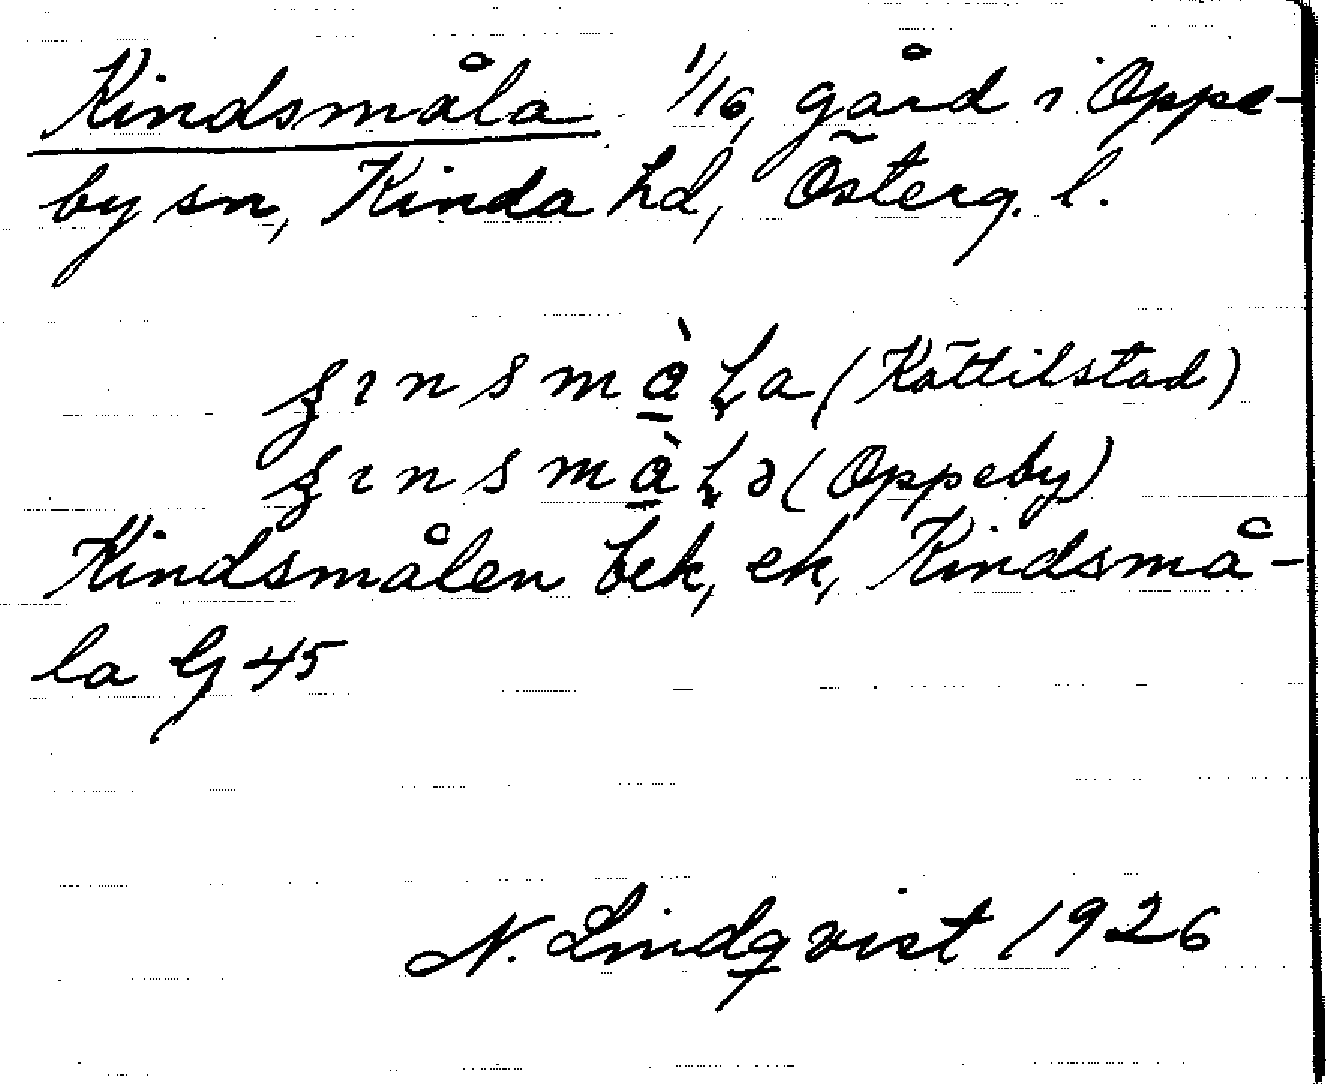 Kindsmåla 1/16 gård i Oppe-
by sn, Kinda hd, Österg. l.
ʂınsmὰ̱ɽa (Kättilstad)
ʂınsmὰ̱ɽə (Oppeby)
Kindsmålen bek, ek, Kindsmå-
la G 45
N. Lindqvist 1926